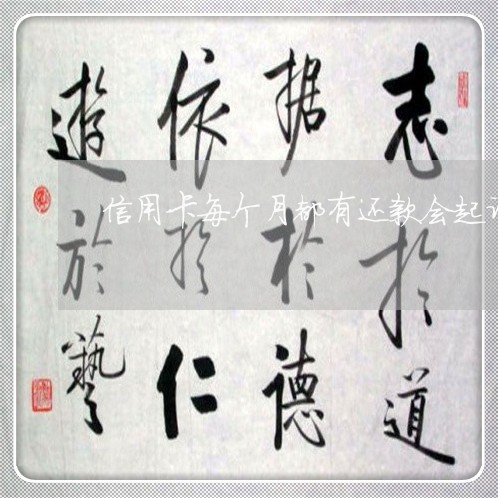 志扵道
据於德
依扵仁
遊於藝
信用卡每个月都有还款会起